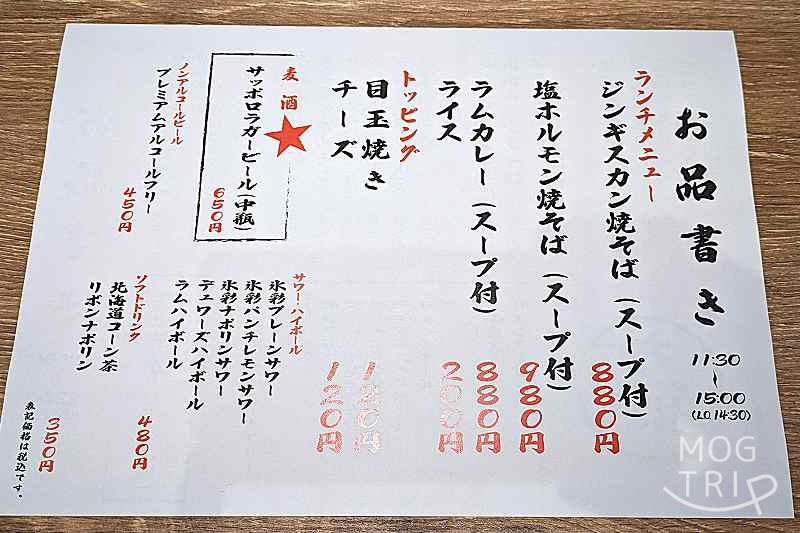 お品書き
11:30
~
15:00
(L.O.14:30)
ランチメニュー
ジンギスカン焼そば(スープ付)
880円
塩ホルモン焼そば(スープ付)
980円
ラムカレー(スープ付)
880円
ライス
200円
トッピング
目玉焼き
120円
チーズ
120円
麦酒
サッポロラガービール(中瓶)
650円
ノンアルコールビール
プレミアムアルコールフリー
450円
サワー・ハイボール
氷彩プレーンサワー
氷彩パンチレモンサワー
氷彩ナポリンサワー
デュワーズハイボール
ラムハイボール
480円
ソフトドリンク
北海道コーン茶
リボンナポリン
350円
表記価格は税込です。
MOG
TRIP